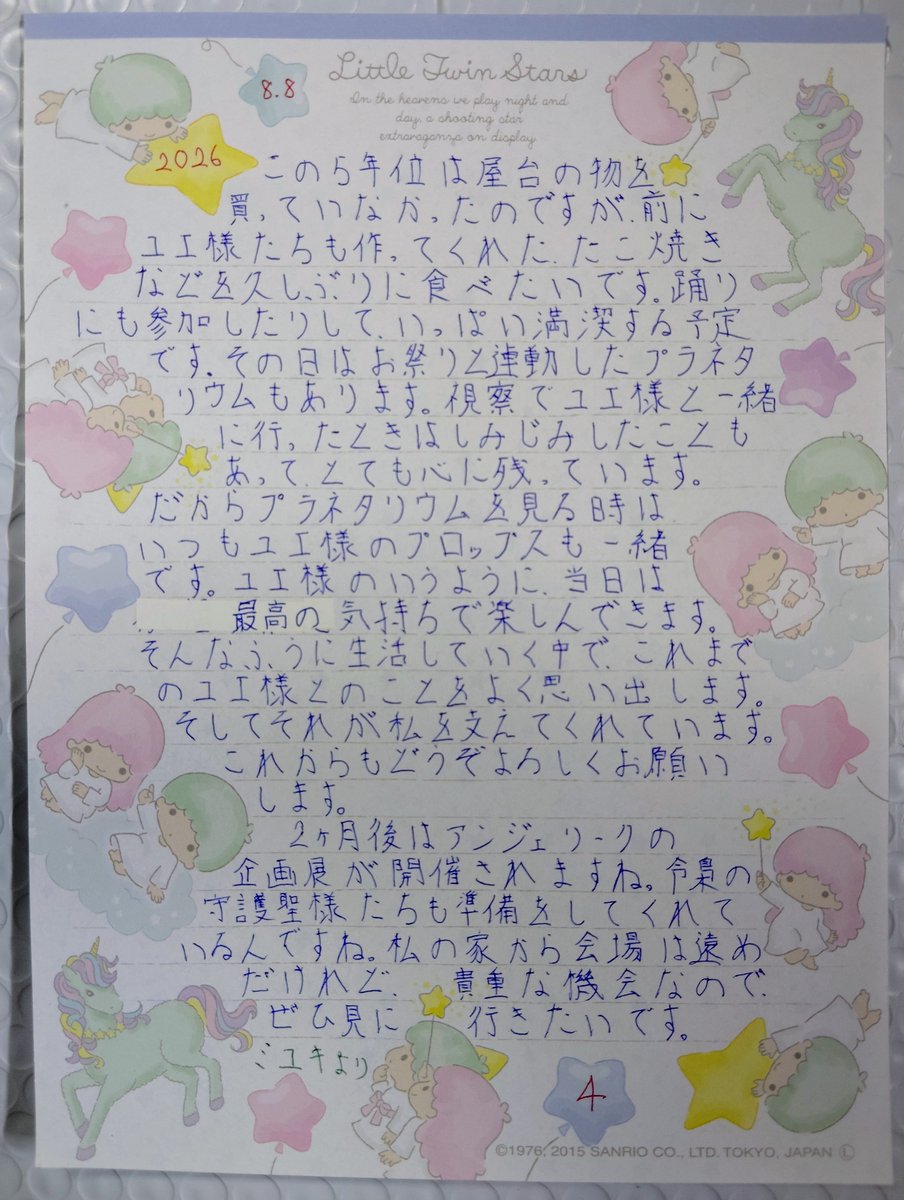 8.8
Little Twin Stars
In the heavens we play night and
day, a shooting star
extravaganza on display
2026
この5年位は屋台の物を
買っていなかったのですが、前に
ユエ様たちも作ってくれた、たこ焼き
などを久しぶりに食べたいです。踊り
にも参加したりして、いっぱい満喫する予定
です。その日はお祭りと連動したプラネタ
リウムもあります。視察でユエ様と一緒
に行ったときはしみじみしたことも
あって、とても心に残っています。
だからプラネタリウムを見る時は、
いつもユエ様のプロップスも一緒
です。ユエ様のいうように、当日は
最高の気持ちで楽しんできます。
そんなふうに生活していく中で、これまで
のユエ様とのことをよく思い出します。
そしてそれが私を支えてくれています。
これからもどうぞよろしくお願い
します。
2ヶ月後はアンジェリークの
企画展が開催されますね。令梟の
守護聖様たちも準備をしてくれて
いるんですね。私の家から会場は遠め
だけれど、貴重な機会なので、
ぜひ見に行きたいです。
ミユキより
4
©1976, 2015 SANRIO CO., LTD. TOKYO, JAPAN Ⓛ